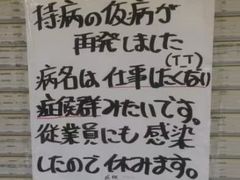 持病の仮病が
再発しました
(T.T)
病名は仕事したくない
症候群みたいです。
従業員にも感染
したので休みます。